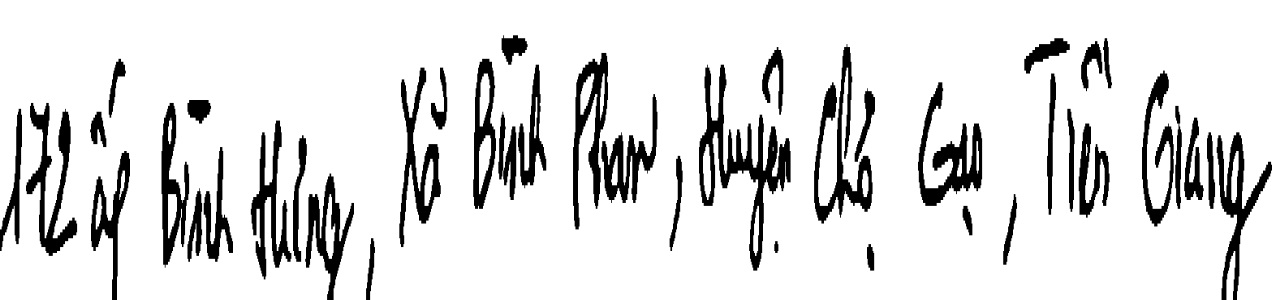 172 ấp Bình Hưng, Xã Bình Phan, Huyện Chợ Gạo, Tiền Giang